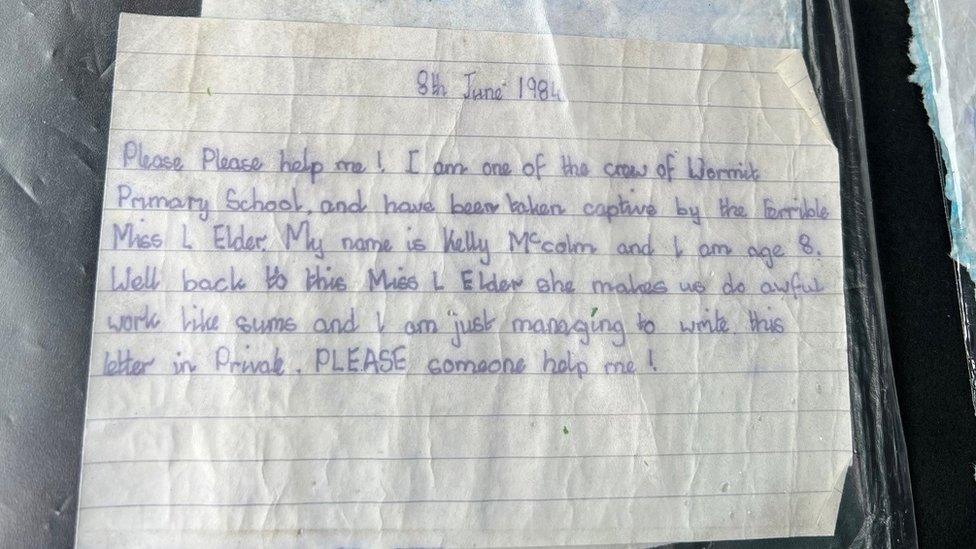 8th June 1984
Please Please help me! I am one of the crew of Wormit
Primary School, and have been taken captive by the terrible
Miss L Elder. My name is Kelly McColm and I am age 8.
Well back to this Miss L Elder she makes us do awful
work like sums and I am just managing to write this
letter in Private. PLEASE someone help me!